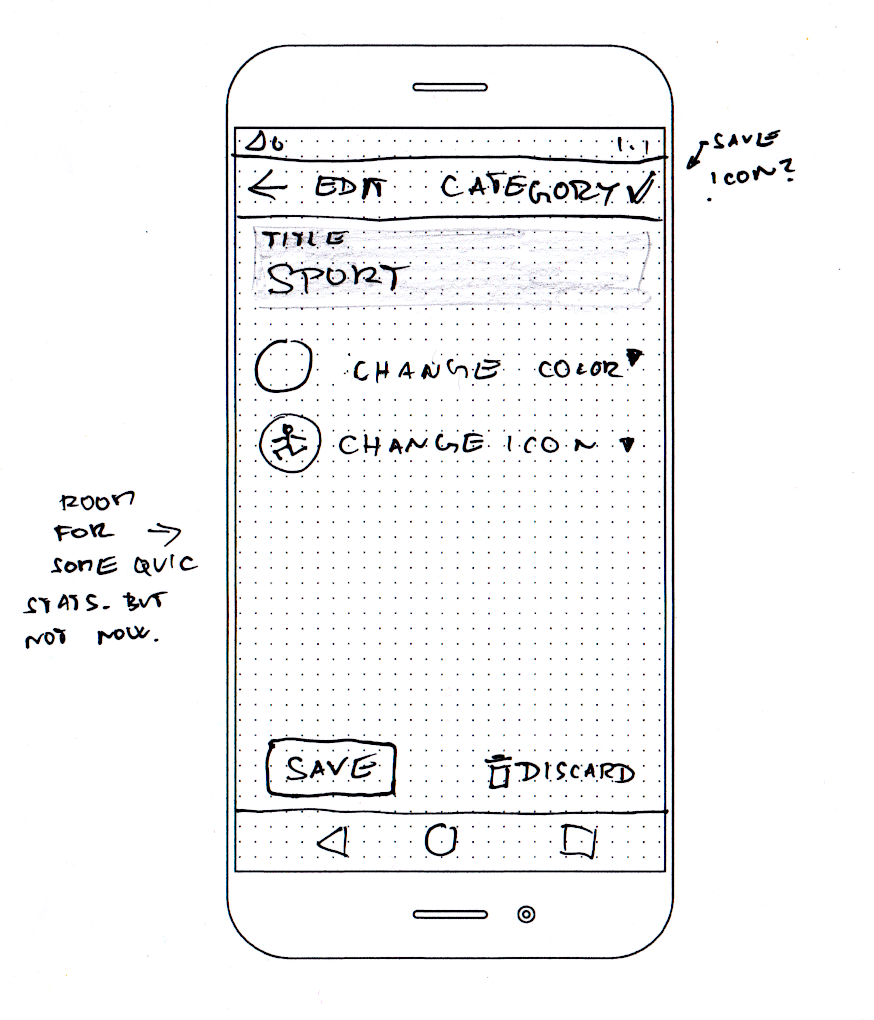 SAVE
ICON?
EDIT CATEGORY
TITLE
SPORT
CHANGE COLOR
CHANGE ICON
ROOM
FOR
SOME QUIC
STATS. BUT
NOT NOW.
SAVE
DISCARD